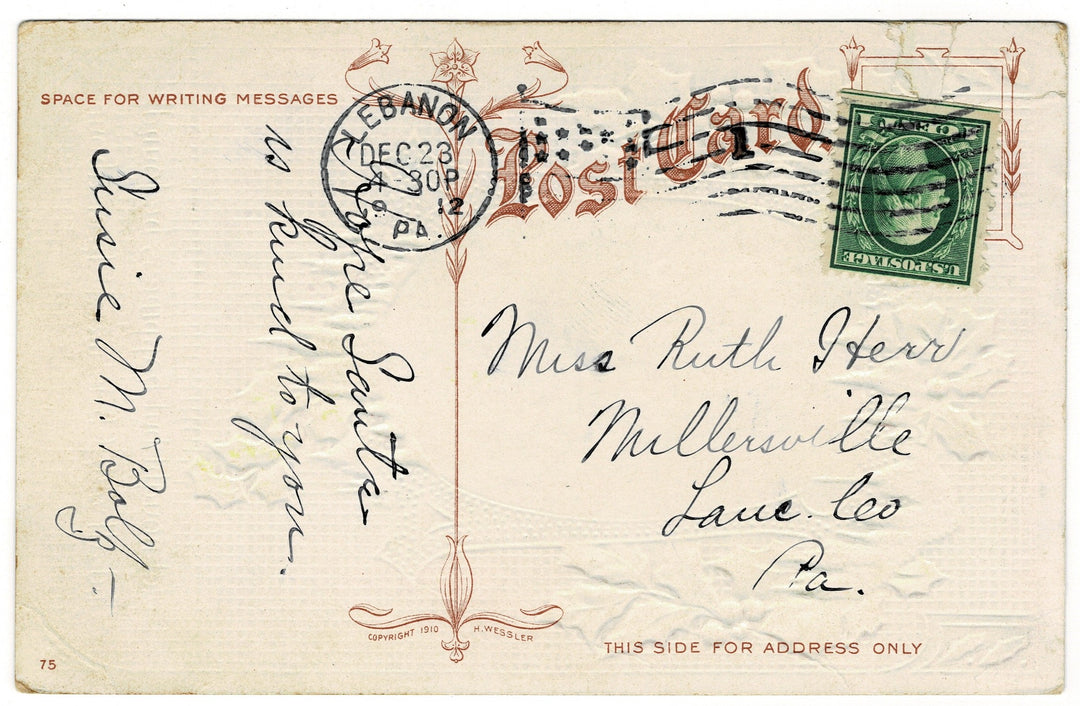 SPACE FOR WRITING MESSAGES
Post Card
LEBANON
DEC 23
4-30P
19 12
PA.
1
U.S. POSTAGE
I Hope Santa
is kind to you.
Susie M. Bolz
Miss Ruth Herr
Millersville
Lanc. Co
Pa.
COPYRIGHT 1910 H. WESSLER
THIS SIDE FOR ADDRESS ONLY
75